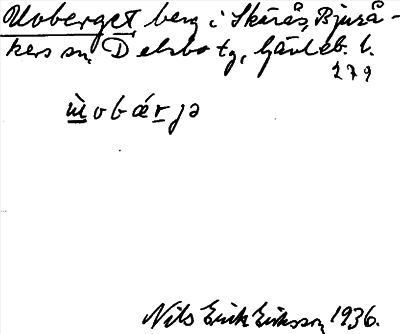 Uvberget, berg i Skärås, Bjurå-
kers sn, Delsbo tg, Gävleb. l.
279
ùvobárja
Nils Erik Eriksson 1936.